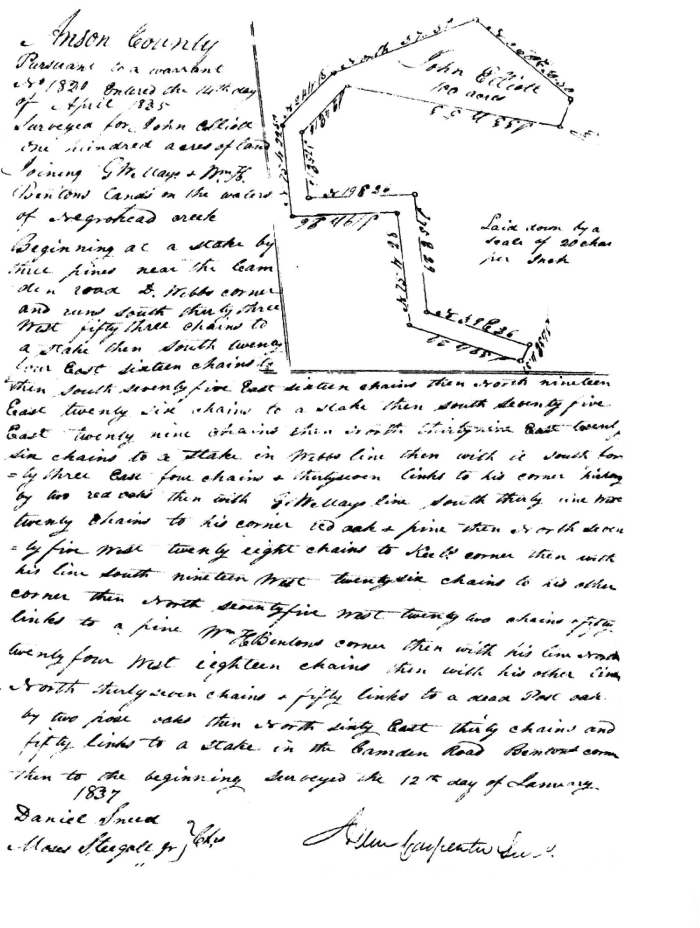 Anson County
Pursuant to a warrant
No 1820 Entered the 14th day
of April 1835
Surveyed for John Elliott
one hundred acres of land
Joining G W Mays & Wm H
Bentons lands on the waters
of Negrohead creek
Beginning at a stake by
three pines near the Cam
den road D. Webbs corner
and runs south thirty three
West fifty three chains to
a stake then South twenty
four East sixteen chains to
then south seventy five East sixteen chains then North nineteen
East twenty six chains to a stake then south seventy five
East twenty nine chains then North thirty nine East twenty
six chains to a stake in Webbs line then with it South for
=ty three East four chains & thirty seven links to his corner
by two red oaks then with G W Mays line South thirty nine West
twenty chains to his corner red oak & pine then North seven
=ty five West twenty eight chains to corner then with
his line south nineteen West twenty six chains to his other
corner then North seventy five West twenty two chains & fifty
links to a pine Wm H Bentons corner then with his line North
twenty four West eighteen chains then with his other line
North thirty seven chains & fifty links to a dead Post oak
by two post oaks then North sixty East thirty chains and
fifty links to a stake in the Camden Road Bentons corn
then to the beginning Surveyed the 12th day of January
1837
Daniel Sneed
Moses Steegall Jr } Chs
Carpenter Sur
John Elliott
100 acres
Laid down by a
scale of 20 chas
per Inch